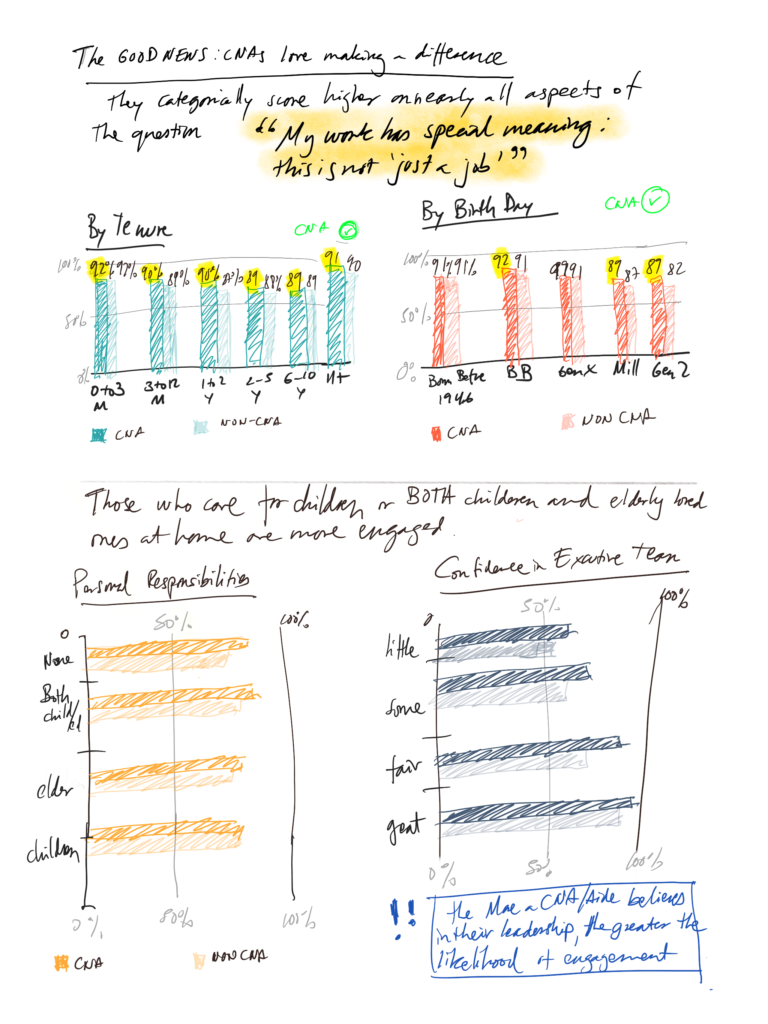 The GOOD NEWS: CNAs love making a difference
They categorially score higher on nearly all aspects of
the question "My work has special meaning:
this is not 'just a job'"
By Tenure
CNA
100%
50%
0%
92% 92% 90% 89% 90% 87% 89 88% 89 89 91 90
0 to 3 M
3 to 12 M
1 to 2 Y
2-5 Y
6-10 Y
11+
CNA
NON-CNA
By Birth Day
CNA
100%
50%
0%
91% 91% 92 91 91 91 89 87 87 82
Born Before 1946
BB
Gen X
Mill
Gen Z
CNA
NON CNA
Those who care for children or BOTH children and elderly loved
ones at home are more engaged.
Personal Responsibilities
0 50% 100%
None
Both
child/
el
elder
children
0% 50% 100%
CNA
NON CNA
Confidence in Exective Team
0 50% 100%
little
some
fair
great
0% 50% 100%
!! the More a CNA/Aide believes
in their leadership, the greater the
likelihood of engagement